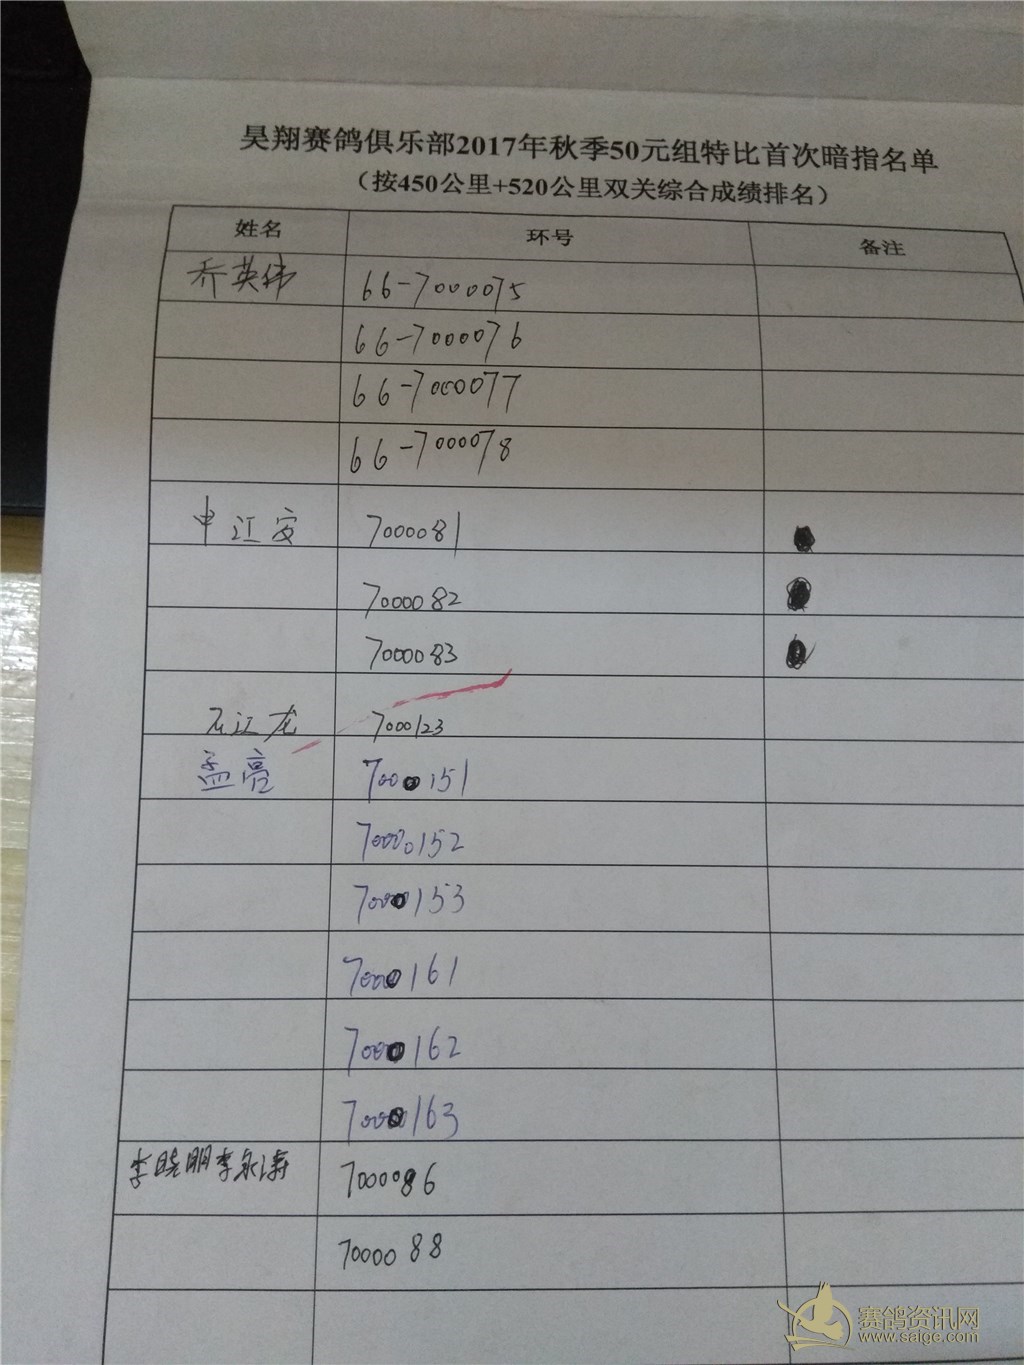 昊翔赛鸽俱乐部2017年秋季50元组特比首次暗指名单
（按450公里+520公里双关综合成绩排名）
姓名 环号 备注
乔英伟 66-7000075
66-7000076
66-7000077
66-7000078
申江安 7000081
7000082
7000083
石江龙 7000123
孟亮 7000151
7000152
7000153
7000161
7000162
7000163
李晓朋李永涛 7000086
7000088
赛鸽资讯网
www.saige.com